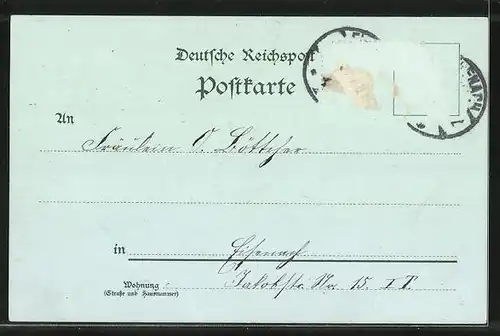 Deutsche Reichspost
Postkarte
An
Fräulein O. Böttcher
in
Eisenach
Wohnung
(Straße und Hausnummer)
Jakobstr. No 15. I